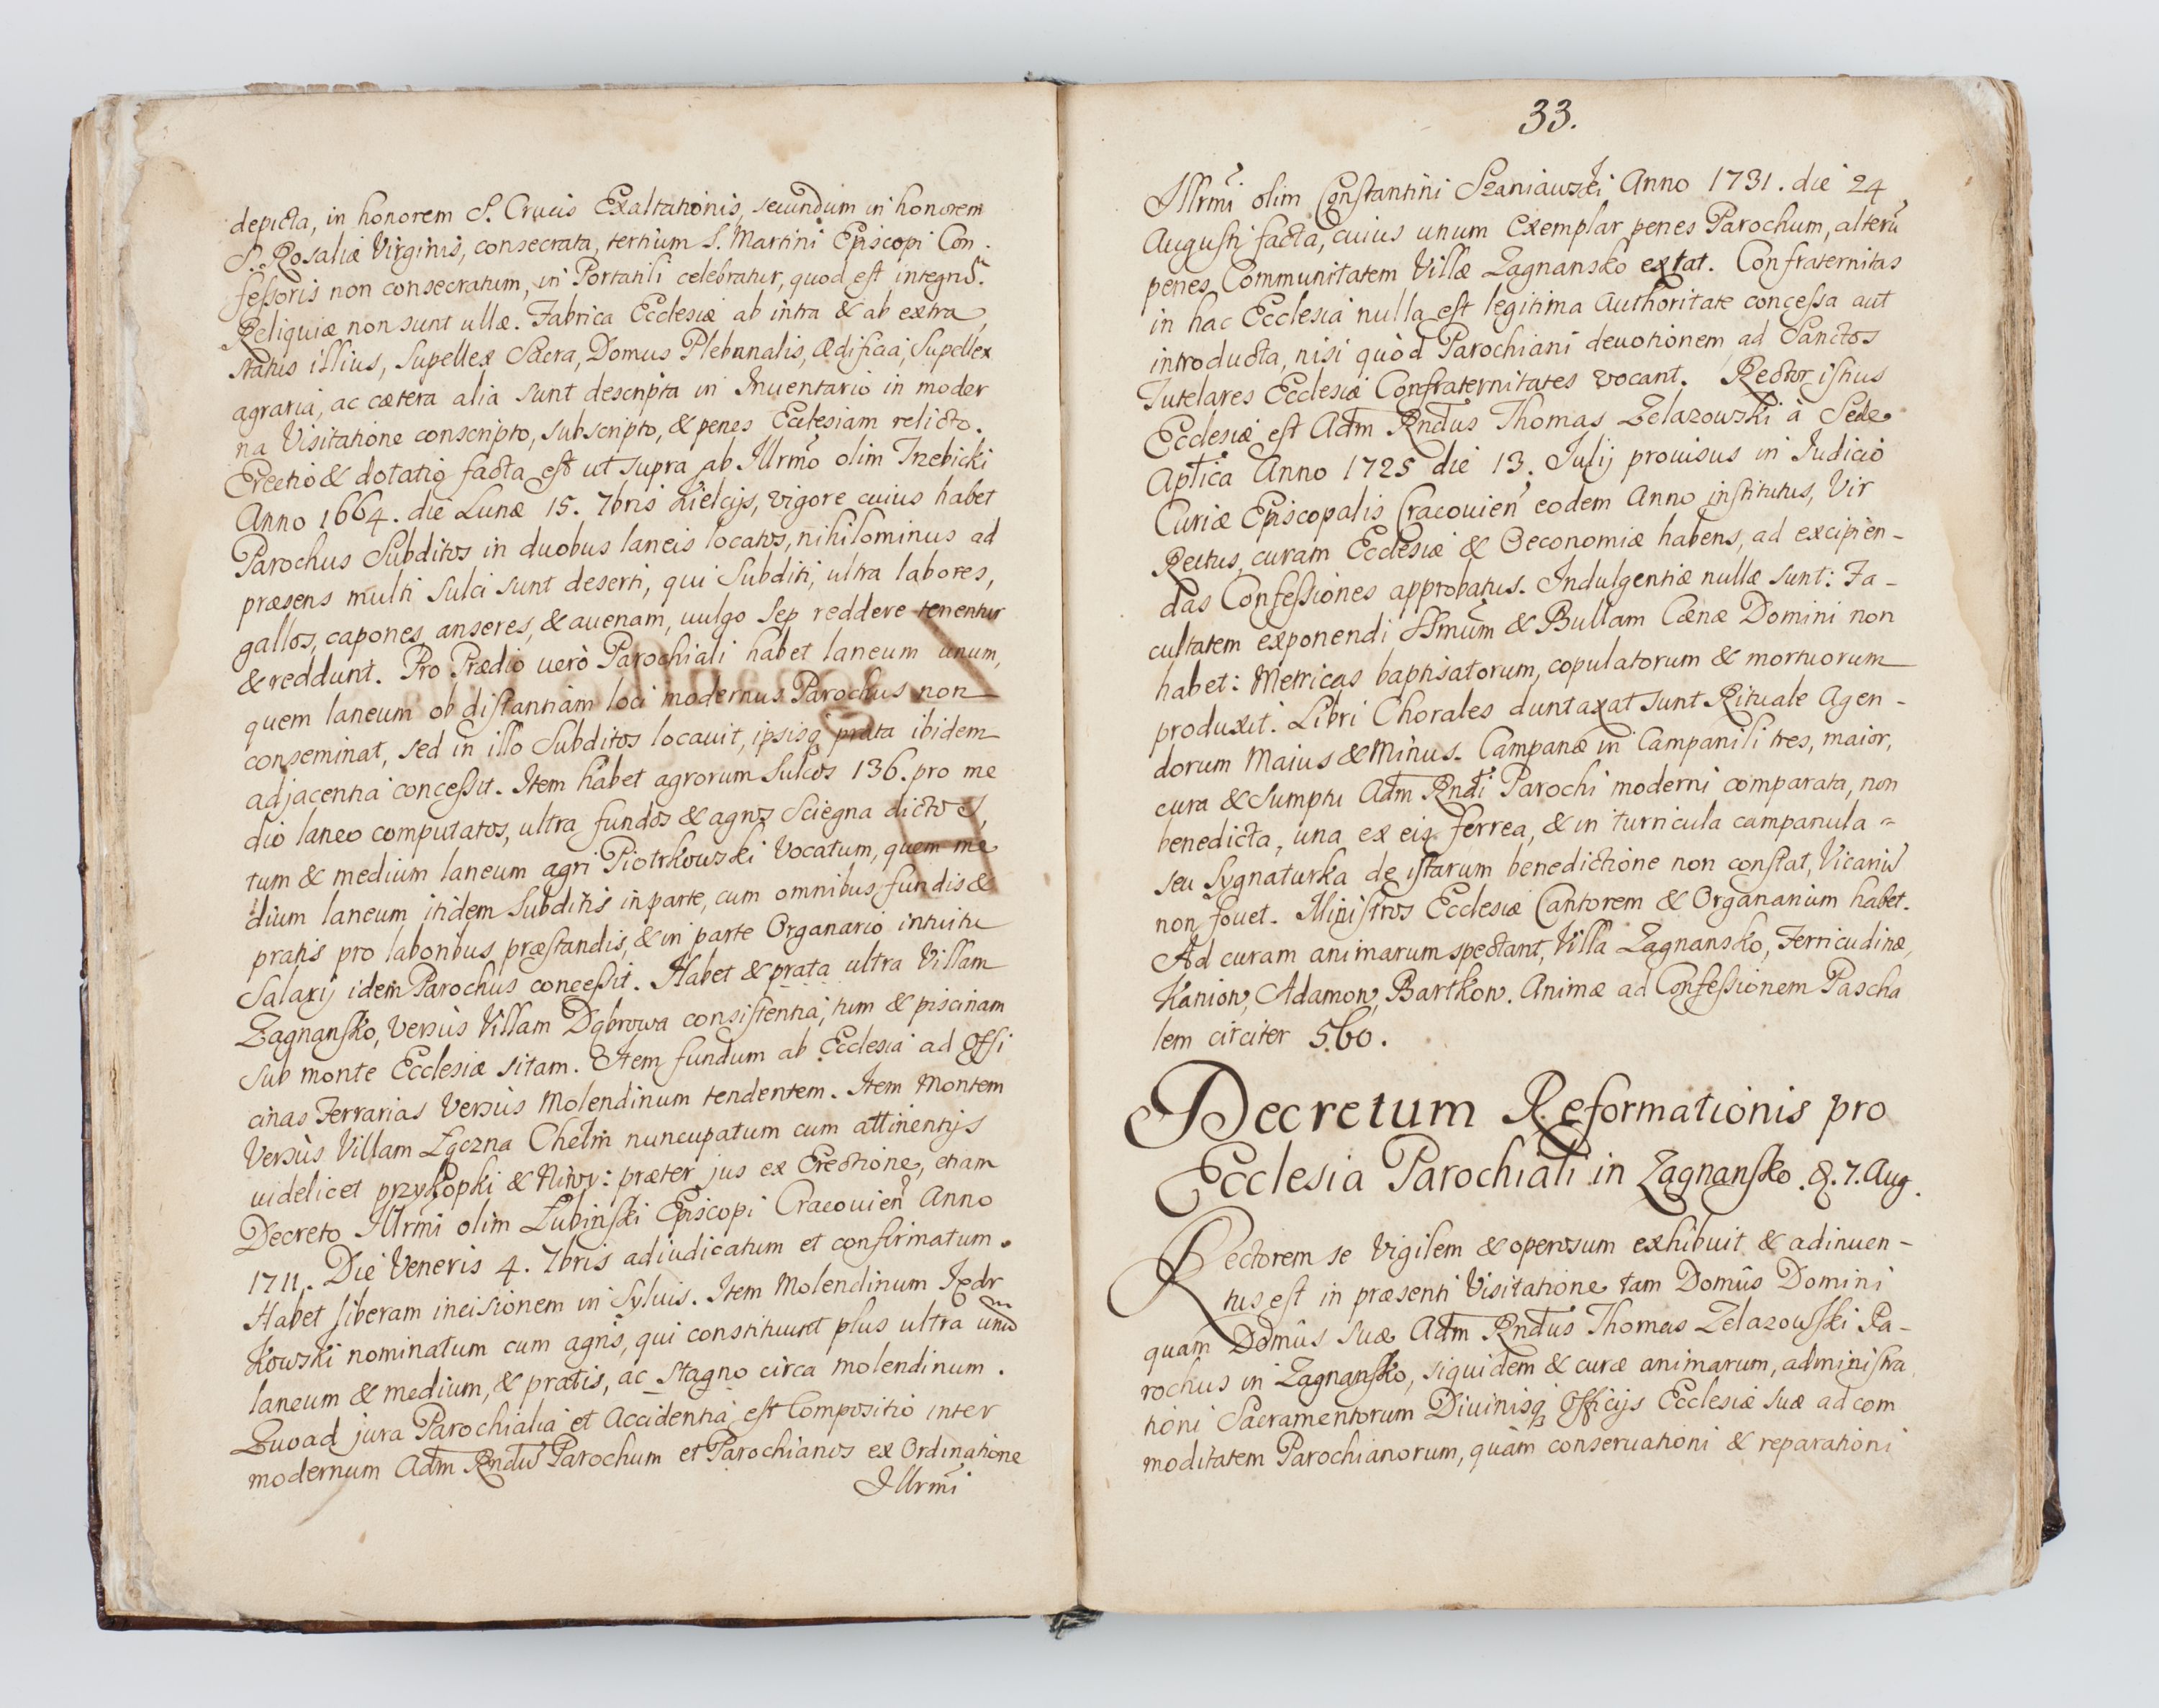 depicta, in honorem S. Crucis Exaltationis, secundum in honorem
S. Rosaliæ Virginis, consecrata, tertium S. Martini Episcopi Con-
fessoris non consecratum, in Portatili celebratur, quod est integrũ.
Reliquiæ non sunt ullæ. Fabrica Ecclesiæ ab intra & ab extra,
status illius, Supellex Sacra, Domus Plebanalis, Ædificia, Supellex
agraria, ac cætera alia sunt descripta in Inuentario in moder
na Visitatione conscripto, subscripto, & penes Ecclesiam relicto.
Erectio & dotatio facta est ut supra ab Illrmo olim Trzebicki
Anno 1664. die Lunæ 15. 7bris Kielcijs, vigore cuius habet
Parochus Subditos in duobus laneis locatos, nihilominus ad
præsens multi sulci sunt deserti, qui Subditi, ultra labores,
gallos, capones, anseres, & auenam, uulgo Sep reddere tenentur
& reddunt. Pro Prædio uerò Parochiali habet laneum unum,
quem laneum ob distantiam loci modernus Parochus non
conseminat, sed in illo Subditos locauit, ipsisq prata ibidem
adjacentia concessit. Item habet agrorum sulcos 136. pro me
dio laneo computatos, ultra fundos & agros Sciegna dictos,
tum & medium laneum agri Piotrkowski Vocatum, quem me
dium laneum itidem Subditis in parte, cum omnibus fundis &
pratis pro laboribus præstandis, & in parte Organario intuitu
Salarij idem Parochus concessit. Habet & prata ultra Villam
Zagnansko, Versùs Villam Dąbrowa consistentia, tum & piscinam
sub monte Ecclesiæ sitam. Item fundum ab Ecclesia ad Offi
cinas Ferrarias Versùs Molendinum tendentem. Item Montem
Versùs Villam Łączna Chełm nuncupatum cum attinentijs
uidelicet przykopki & Niwy: præter jus ex Erectione, etiam
Decreto Illrmi olim Łubinski Episcopi Cracouien Anno
1711. Die Veneris 4. 7bris adiudicatum et confirmatum.
Habet liberam incisionem in Syluis. Item Molendinum Jędr
Kowski nominatum cum agris, qui constituunt plus ultra unũ
laneum & medium, & pratis, ac stagno circa molendinum.
Quoad jura Parochialia et Accidentia est Compositio inter
modernum Adm Rndũ Parochum et Parochianos ex Ordinatione
Illrmi
33.
Illrmi olim Constantini Szaniawski Anno 1731. die 24
Augusti facta, cuius unum Exemplar penes Parochum, alterũ
penes Communitatem Villæ Zagnansko extat. Confraternitas
in hac Ecclesia nulla est legitima Authoritate concessa aut
introducta, nisi quòd Parochiani deuotionem ad Sanctos
Tutelares Ecclesiæ Confraternitates vocant. Rector istius
Ecclesiæ est Adm Rndus Thomas Zelazowski à Sede
Aptica Anno 1725 die 13. Julij prouisus in Judicio
Curiæ Episcopalis Cracouien eodem Anno institutus, Vir
Rectus, curam Ecclesiæ & Oeconomiæ habens, ad excipien-
das Confessiones approbatus. Indulgentiæ nullæ sunt: Fa-
cultatem exponendi SSmum & Bullam Cænæ Domini non
habet: Metricas baptisatorum, copulatorum & mortuorum
produxit. Libri Chorales duntaxat sunt Rituale Agen-
dorum Maius & Minus. Campanæ in Campanili tres, maior,
cura & sumptu Adm Rndi Parochi moderni comparata, non
benedicta, una ex eis ferrea, & in turricula campanula =
seu Sygnaturka de istarum benedictione non constat, Vicariũ
non fouet. Ministros Ecclesiæ Cantorem & Organarium habet.
Ad curam animarum spectant, Villa Zagnansko, Ferricudinæ,
Kaniow, Adamow, Bartkow. Animæ ad Confessionem Pascha
lem circiter 560.
Decretum Reformationis pro
Ecclesia Parochiali in Zagnansko. d. 7. Aug.
Rectorem se Vigilem & operosum exhibuit & adinuen-
tus est in præsenti Visitatione tam Domûs Domini
quàm Domûs suæ Adm Rndus Thomas Zelazowski Pa-
rochus in Zagnansko, siquidem & curæ animarum, administra
tioni Sacramentorum Diuinisq Officijs Ecclesiæ suæ ad com
moditatem Parochianorum, quàm conseruationi & reparationi